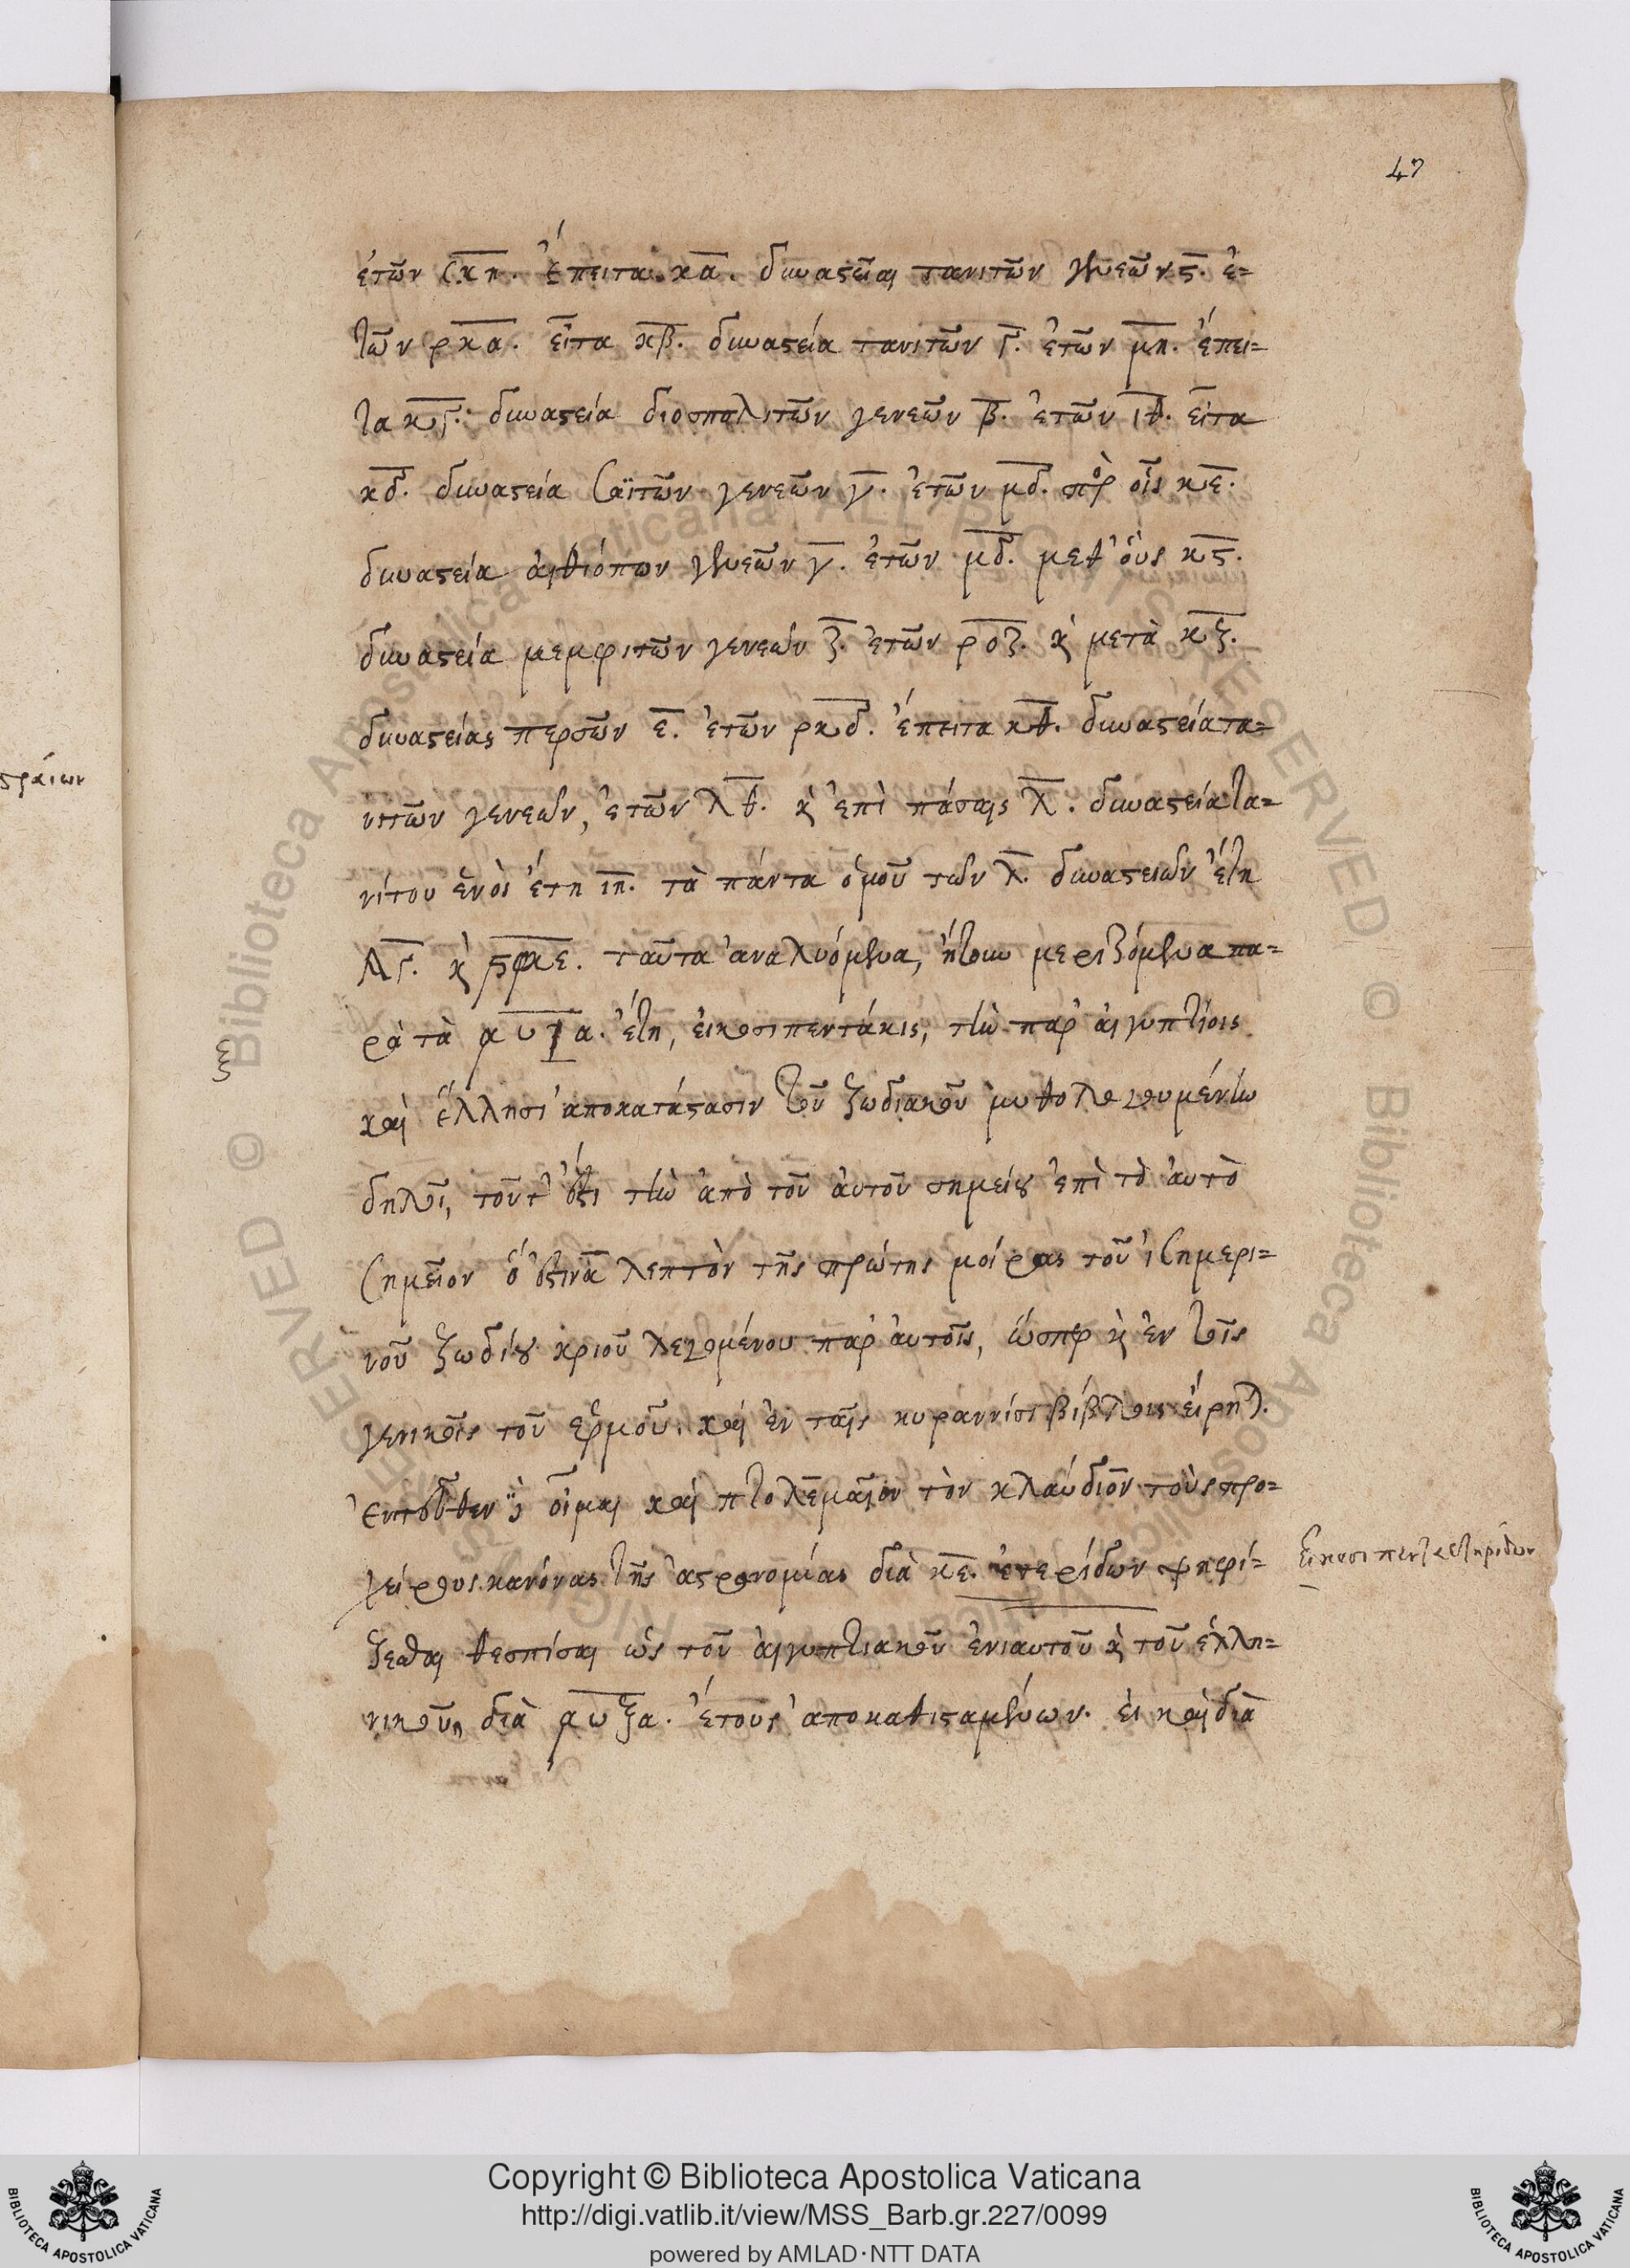 47
ἐτῶν σκη. ἔπειτα κα. δυναστεῖαι τανιτῶν γενεῶν ς. ἐ=
τῶν ρκα. εἶτα κβ. δυναστεία τανιτῶν γ. ἐτῶν μη. ἔπει=
τα κγ. δυναστεία διοσπολιτῶν γενεῶν β. ἐτῶν ιθ. εἶτα
κδ. δυναστεία σαϊτῶν γενεῶν γ. ἐτῶν μδ. πρὸς οἷς κε.
δυναστεία αἰθιόπων γενεῶν γ. ἐτῶν μδ. μεθ' οὓς κς.
δυναστεία μεμφιτῶν γενεῶν ζ. ἐτῶν ροζ. κὶ μετὰ κζ.
δυναστείας περσῶν ε. ἐτῶν ρκδ. ἔπειτα κθ. δυναστεία τα=
νιτῶν γενεῶν, ἐτῶν λθ. κὶ ἐπὶ πάσαις λ. δυναστεία τα=
νίτου ἑνὸς ἔτη ιη. τὰ πάντα ὁμοῦ τῶν λ. δυναστειῶν ἔτη
Μγ. κὶ ςφκε. ταῦτα ἀναλυόμενα, ἤτουν μεριζόμενα πα=
ρὰ τὰ αυξα. ἔτη, εἰκοσιπεντάκις, τὴν παρ' αἰγυπτίοις
καὶ ἕλλησι ἀποκατάστασιν τοῦ ζωδιακοῦ μυθολογουμένην
δηλοῖ, τοῦτ' ἔστι τὴν ἀπὸ τοῦ αὐτοῦ σημείου ἐπὶ τὸ αὐτὸ
σημεῖον ὅ ἐστιν α λεπτὸν τῆς πρώτης μοίρας τοῦ ἰσημερι=
νοῦ ζωδίου κριοῦ λεγομένου παρ' αὐτοῖς, ὥσπερ κὶ ἐν τοῖς
γενικοῖς τοῦ ἑρμοῦ. καὶ ἐν ταῖς κυραννίσι βίβλοις εἴρηται.
ἐντεῦθεν δὲ οἶμαι καὶ πτολεμαῖον τὸν κλαύδιον τοὺς προ=
χείρους κανόνας τῆς ἀστρονομίας διὰ κε. ἐτερίδων ψηφί=
εἰκοσιπενταετηρίδων
ζεσθαι θεσπίσαι ὡς τοῦ αἰγυπτιακοῦ ἐνιαυτοῦ κὶ τοῦ ἑλλη=
νικοῦ, διὰ αυξα. ἔτους ἀποκαθισταμένων. εἰ καὶ διὰ
στραίων
Copyright © Biblioteca Apostolica Vaticana
http://digi.vatlib.it/view/MSS_Barb.gr.227/0099
powered by AMLAD·NTT DATA
BIBLIOTECA APOSTOLICA VATICANA
BIBLIOTECA APOSTOLICA VATICANA